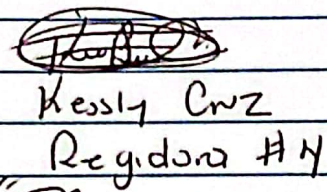 Kessly Cruz
Regidora # 4